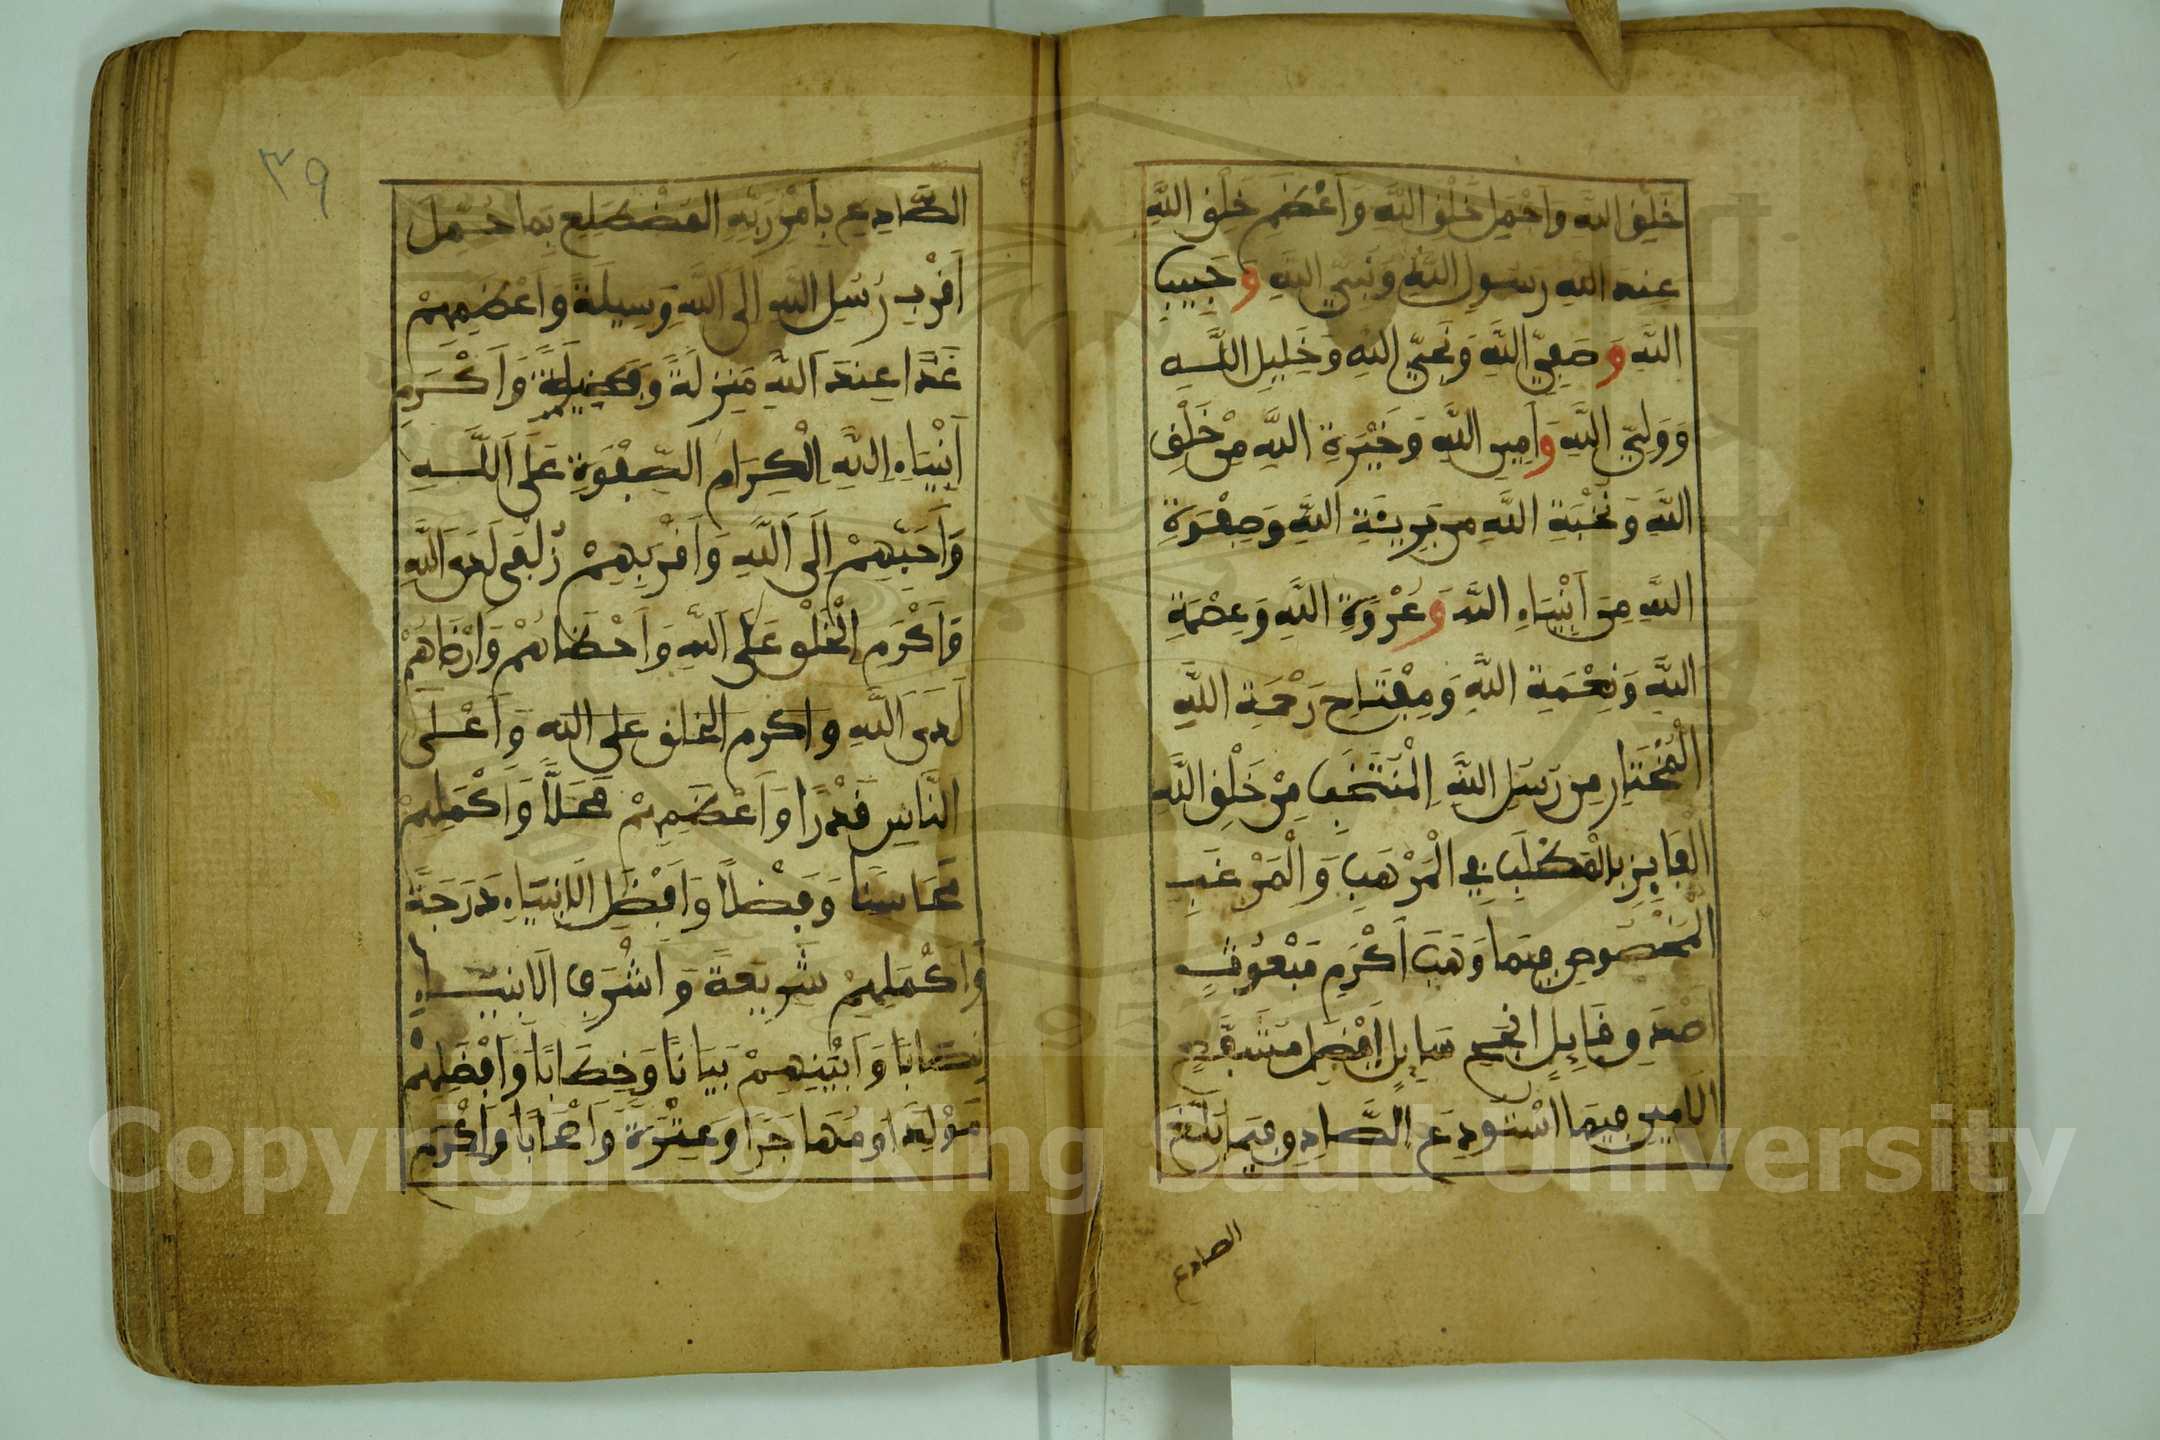 خَلْقِ اللهِ وَأَجْمَلِ خَلْقِ اللَّهِ وَأَعْظَمِ خَلْقِ اللَّهِ
عِندَ اللهِ رَسُولِ اللَّهِ وَنَبِيِّ اللهِ وَحَبِيبِ
اللَّهِ وَصَفِيِّ اللَّهِ وَنَجِيِّ اللهِ وَخَلِيلِ اللَّهِ
وَوَلِيِّ اللَّهِ وَأَمِينِ اللَّهِ وَخَيْرَةِ اللَّهِ مِنْ خَلْقِ
اللَّهِ وَنُخْبَةِ اللَّهِ مِن بَرِيئَةِ اللَّهِ وَصَفْوَةِ
اللَّهِ مِنَ أَنْبِيَاءِ اللَّهِ وَعُرْوَةِ اللَّهِ وَعِصْمَةِ
اللَّهِ وَنِعْمَةِ اللَّهِ وَمِفْتَاحِ رَحْمَةِ اللَّهِ
الْمُخْتَارِ مِن رُسُلِ اللَّهِ الْمُنْتَخَبِ مِنْ خَلْقِ اللَّهِ
الْفَايِزِ بِالْمَطْلَبِ فِي الْمَرْهَبِ وَالْمَرْغَبِ
الْمَخْصُوصِ فِيمَا وَهَبَ أَكْرَمِ مَبْعُوثٍ
أَصْدَقِ قَايِلٍ انْجَحِ سَايِلٍ أَفْضَلِ مُشَفَّعٍ
الَامِينِ فِيمَا اسْتُودِعَ الصَّادِقِ فِيمَا بَلَّغَ
الصادع
٣٩
الصَّادِعِ بِأَمْرِ رَبِّهِ الْمُضْطَلِعِ بِمَا حُمِّلَ
أَقْرَبِ رُسُلِ اللَّهِ إِلَى اللَّهِ وَسِيلَةً وَأَعْظَمِهِمْ
غَدًا عِندَ اللَّهِ مَنزِلَةً وَفَضِيلَةً وَأَكْرَمِ
أَنْبِيَاءِ اللَّهِ الْكِرَامِ الصَّفْوَةِ عَلَى اللَّهِ
وَأَحَبِّهِمْ إِلَى اللَّهِ وَأَقْرَبِهِمْ زُلْفَى لَدَى اللَّهِ
وَأَكْرَمِ الْخَلْقِ عَلَى اللَّهِ وَأَحْظَاهُمْ وَأَرْضَاهُمْ
لَدَى اللَّهِ وَاكرم الخلق على الله وَأَعْلَى
النَّاسِ قَدْرًا وَأَعْظَمِهِمْ مَحَلًّا وَأَكْمَلِهِمْ
مَحَاسِنًا وَفَضْلًا وَأَفْضَلِ الَانبِيَاءِ دَرَجَةً
وَأَكْمَلِهِمْ شَرِيعَةً وَأَشْرَفِ الَانبِيَاءِ
نِصَابًا وَأَبْيَنِهِمْ بَيَانًا وَخِطَابًا وَأَفْضَلِهِمْ
مَوْلِدًا وَمُهَاجَرًا وَعِتْرَةً وَأَصْحَابًا وَأَكْرَمِ
Copyright © King Saud University